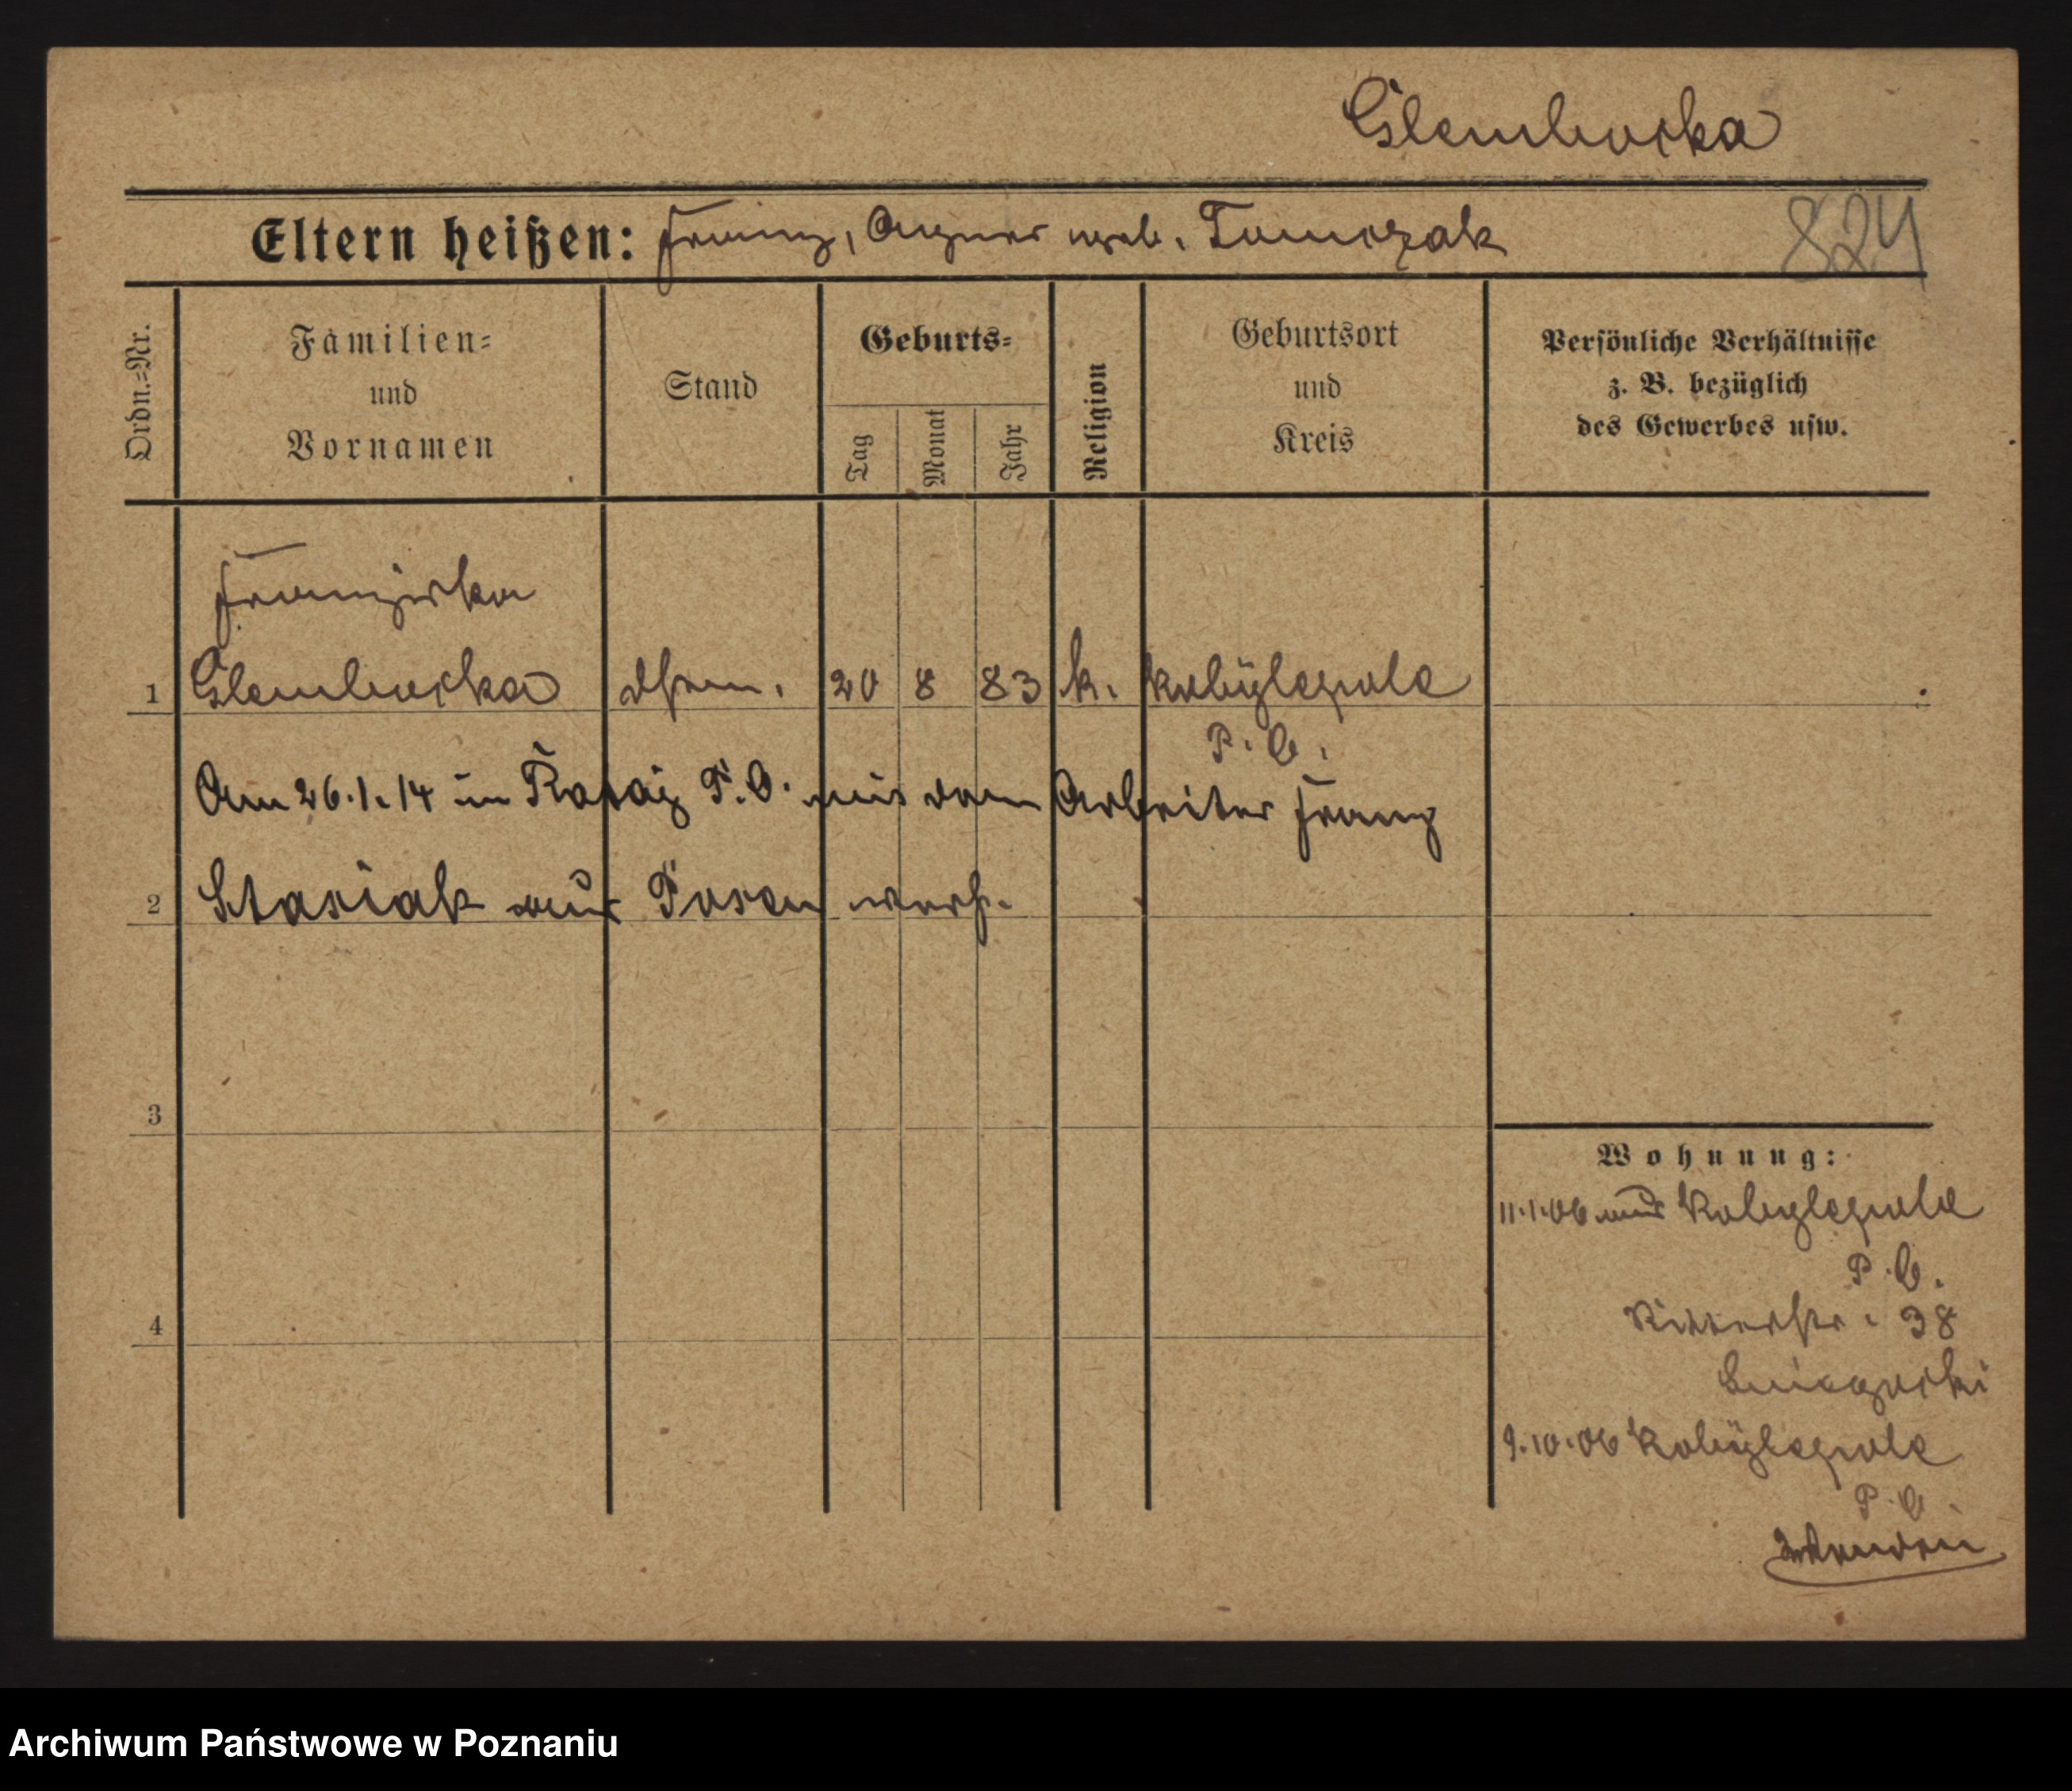 Glembocka
Eltern heißen: Franz, Agnes geb. Tomczak
824
Ordn.=Nr.
Familien=
und
Vornamen
Stand
Geburts=
Tag
Monat
Jahr
Religion
Geburtsort
und
Kreis
Persönliche Verhältnisse
z. B. bezüglich
des Gewerbes usw.
Franziska
1 Glembocka 20 8 83 k. Kobylepole
P. O.
Am 26.1.14 in Rataj P. O. mit dem Arbeiter Franz
2 Stasiak aus Posen verh.
3
4
Wohnung:
11.1.06 aus Kobylepole
P. O.
Ritterstr. 38
9.10.06 Kobylepole
P. O.
Archiwum Państwowe w Poznaniu